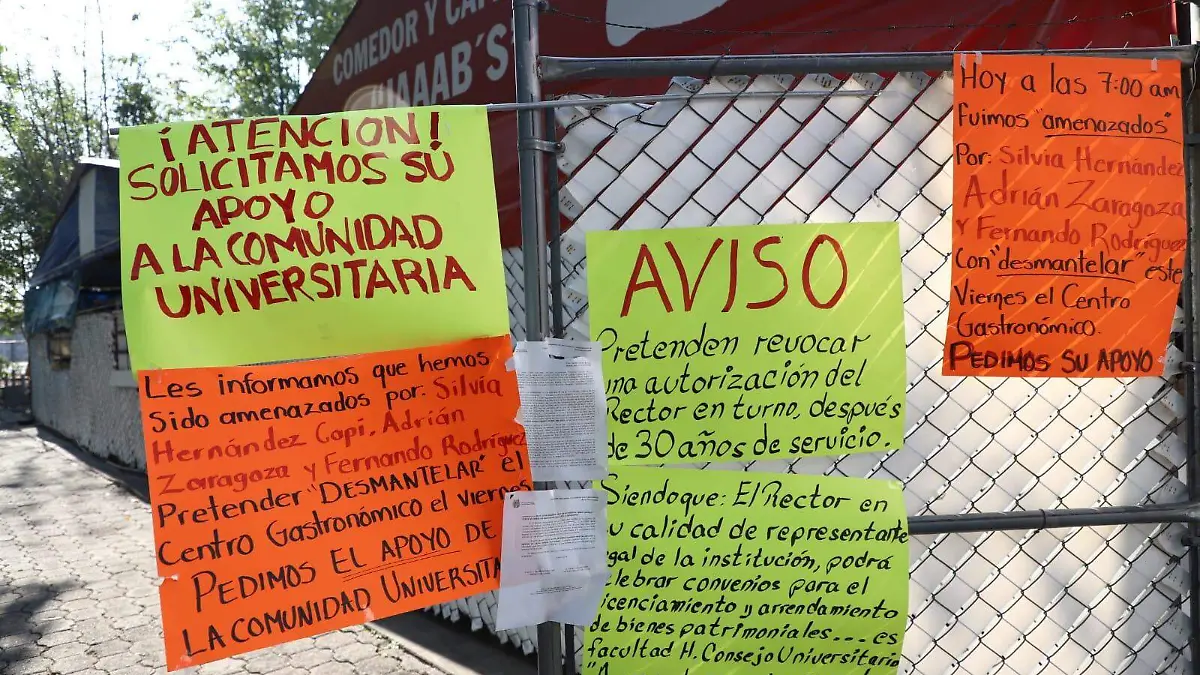 COMEDOR Y
UAAAB'S
¡ATENCIÓN!
SOLICITAMOS SÚ
APOYO
A LA COMUNIDAD
UNIVERSITARIA
Les informamos que hemos
Sido amenazados por: Silvia
Hernández Copi. Adrián
Zaragoza y Fernando Rodríguez
Pretender "DESMANTELAR" el
Centro Gastronómico el viernes
PEDIMOS EL APOYO DE
LA COMUNIDAD UNIVERSITA
AVISO
Pretenden revocar
una autorización del
Rector en turno, después
de 30 años de servicio.
Siendoque: El Rector en
su calidad de representante
legal de la institución, podrá
celebrar convenios para el
licenciamiento y arrendamiento
de bienes patrimoniales... es
facultad H. Consejo Universitario
Hoy a las 7:00 am
Fuimos "amenazados"
Por: Silvia Hernández
Adrián Zaragoza
y Fernando Rodríguez
Con "desmantelar" este
Viernes el Centro
Gastronómico.
PEDIMOS SU APOYO